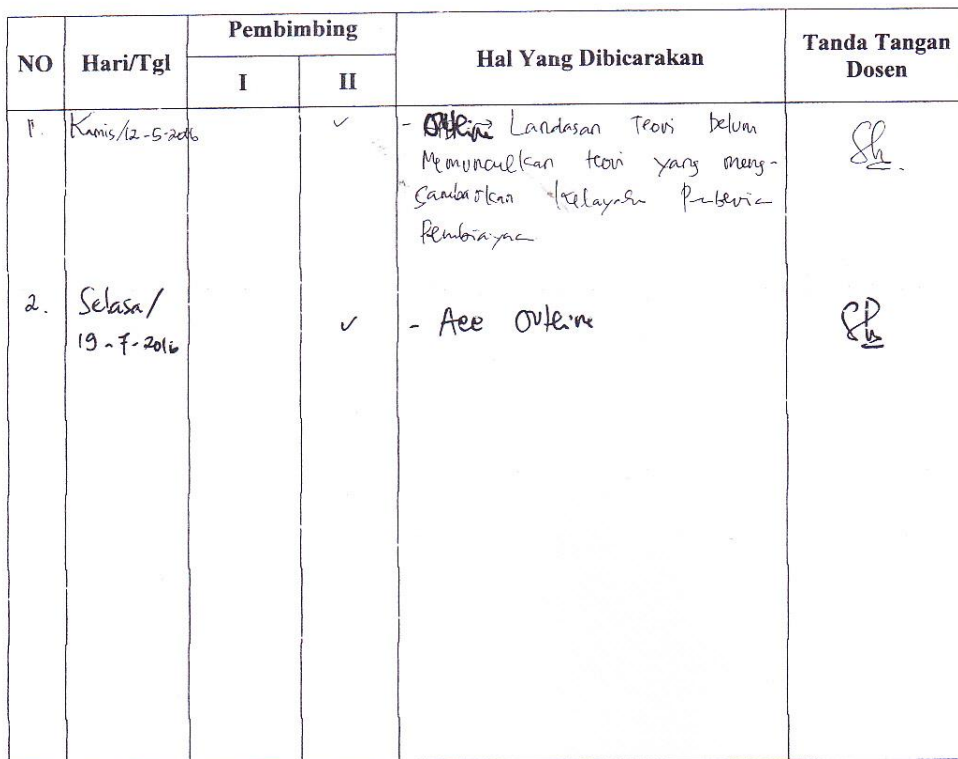 NO Hari/Tgl Pembimbing Hal Yang Dibicarakan Tanda Tangan Dosen
I II
1. Kamis/12-5-2016 ✓ - Outline Landasan Teori belum
Memunculkan teori yang meng-
gambarkan kelayakan
Pembiayaan
2. Selasa/
19-7-2016 ✓ - Acc Outline